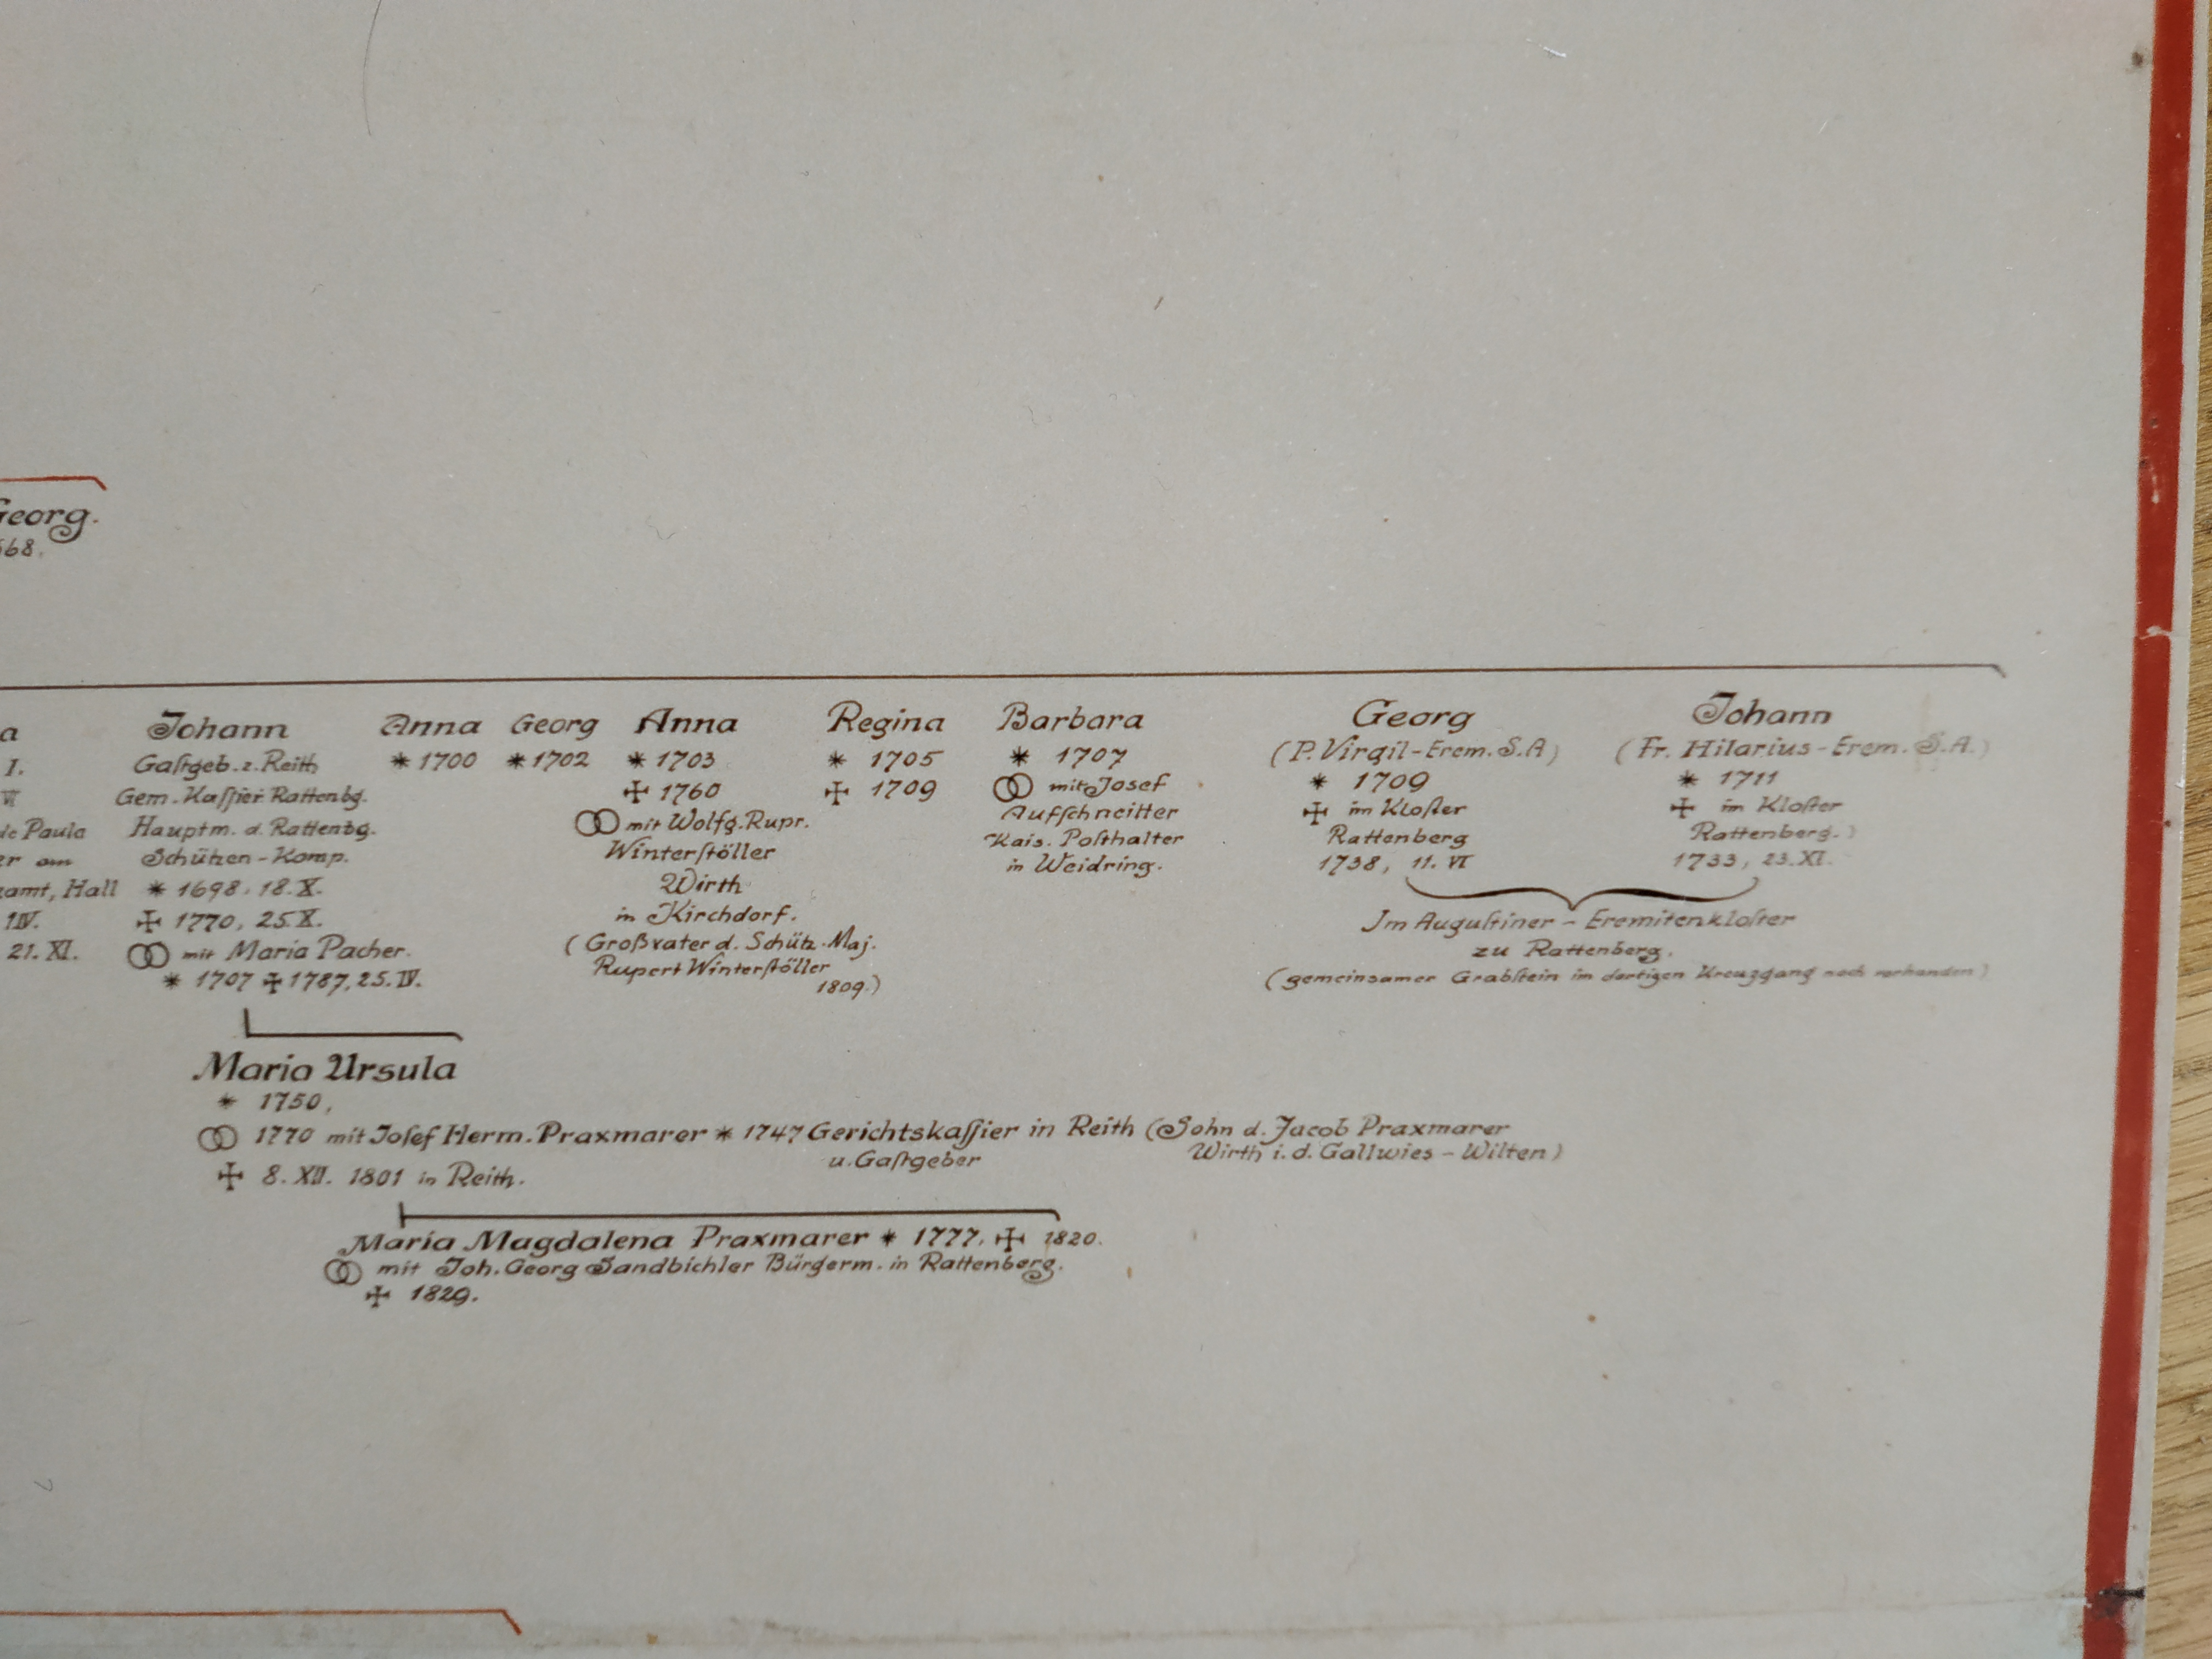 Georg.
568.
a
1.
VI
de Paula
er am
zamt, Hall
1.IV.
21. XI.
Johann
Gaſtgeb. z. Reith
Gem. Kaſſier Rattenbg.
Hauptm. d. Rattenbg.
Schützen-Komp.
* 1698, 18. X.
✠ 1770, 25. X.
⚭ mit Maria Pacher.
* 1707 ✠ 1787, 25. IV.
Anna
* 1700
Georg
* 1702
Anna
* 1703
✠ 1760
⚭ mit Wolfg. Rupr.
Winterſtöller
Wirth
in Kirchdorf.
(Großvater d. Schütz. Maj.
Rupert Winterſtöller
1809.)
Regina
* 1705
✠ 1709
Barbara
* 1707
⚭ mit Josef
Aufſchneitter
Kais. Poſthalter
in Weidring.
Georg
(P. Virgil-Erem. S.A)
* 1709
✠ im Kloſter
Rattenberg
1738, 11. VI
Johann
(Fr. Hilarius-Erem. S.A.)
* 1711
✠ im Kloſter
Rattenberg.)
1733, 23. XI.
Im Auguſtiner - Eremitenkloſter
zu Rattenberg.
(gemeinsamer Grabſtein im dortigen Kreuzgang noch vorhanden)
Maria Ursula
* 1750,
⚭ 1770 mit Joſef Herm. Praxmarer * 1747 Gerichtskaſſier in Reith (Sohn d. Jacob Praxmarer
u. Gaſtgeber Wirth i. d. Gallwies - Wilten)
✠ 8. XII. 1801 in Reith.
Maria Magdalena Praxmarer * 1777, ✠ 1820.
⚭ mit Joh. Georg Sandbichler Bürgerm. in Rattenberg.
✠ 1829.